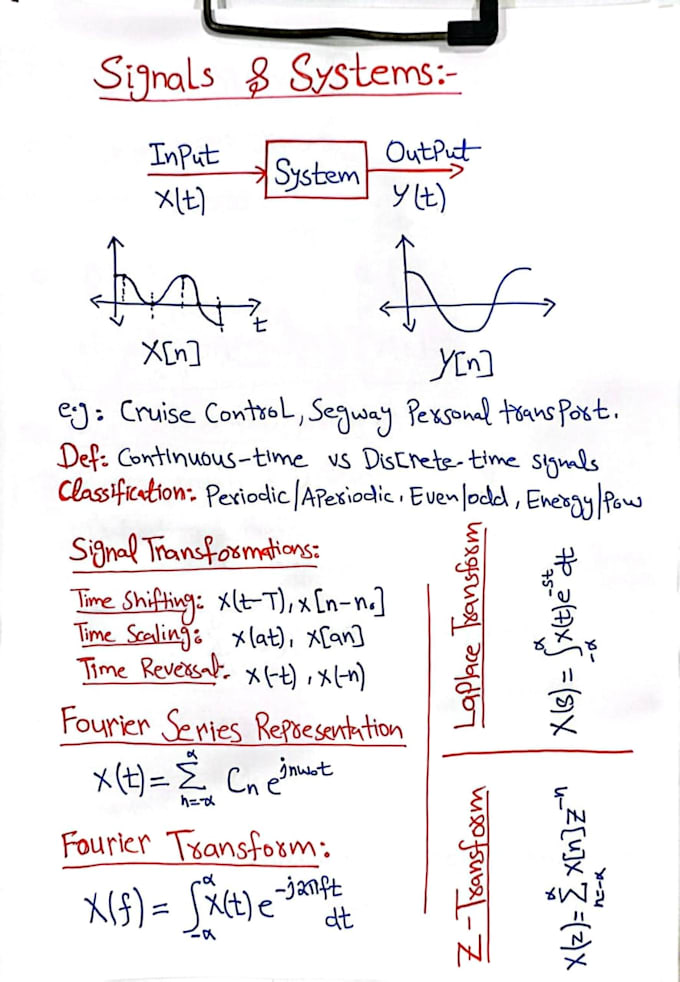 Signals & Systems:-
InPut
System
OutPut
X(t)
Y(t)
t
X[n]
Y[n]
e.g: Cruise ControL, Segway Personal transPort.
Def: Continuous-time vs Discrete-time signals
Classification: Periodic/APeriodic, Even/odd, Energy/Pow
Signal Transformations:
Time Shifting: X(t-T), x[n-n₀]
Time Scaling: x(at), x[an]
Time Reversal: x(-t), x(-n)
Fourier Series Representation
X(t) = ∑_{n=-α}^{α} Cₙ e^{jnω₀t}
Fourier Transform:
X(f) = ∫_{-α}^{α} X(t) e^{-j2πft} dt
LaPlace Transform
X(s) = ∫_{-α}^{α} x(t) e^{-st} dt
Z-Transform
X(z) = ∑_{n=-α}^{α} x[n] z^{-n}